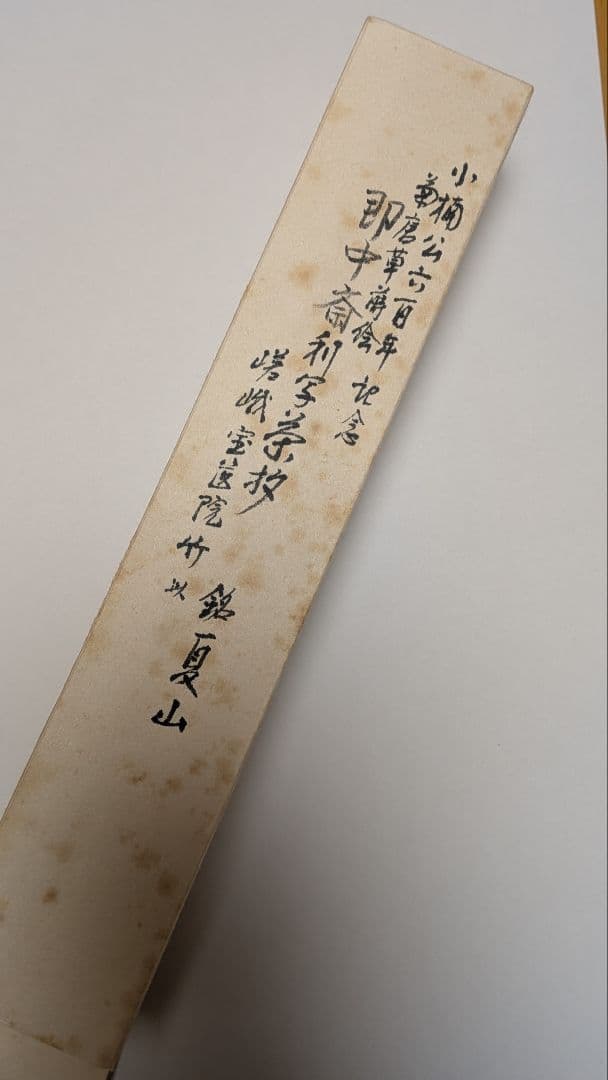 小楠公六百年 記念
菊唐草蒔絵
即中斎利写茶杓 銘 夏山
嵯峨宝筐院竹以